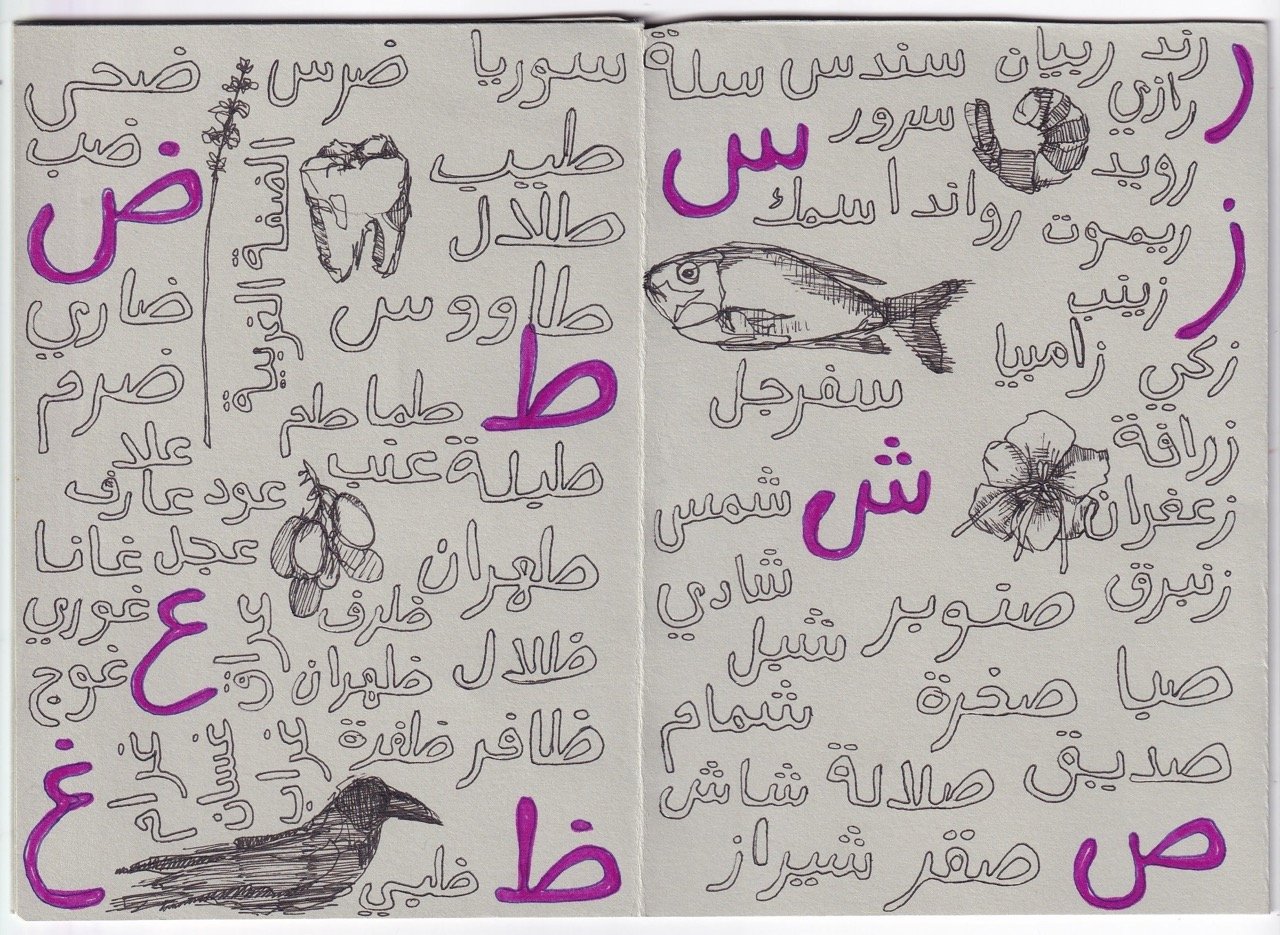 ر
رند ربيان
رازي
رويد
ريموت رواندا
ز
زينب
زكي زامبيا
زراقة
زعفران
زنبرق
سندس سلة
سرور
س
سمك
سفرجل
ش
شمس
شادي
شبل
شمام
شاش
شيراز
صنوبر
صبا صخرة
صديق صلالة
صقر
ص
سوريا
ضرس ضحى
ضب
ض
الضفة الغربية
ضاري
ضرم
طبيب
طلال
طاووس
ط
طماطم
طبلة
طهران
عنب
علا
عود عارف
عجل
ع
عراق
غانا
غوري
غوج
ظرف
ظلال ظهران
ظافر ظفرة
غراب
غسان
غ
ظ
ظبي